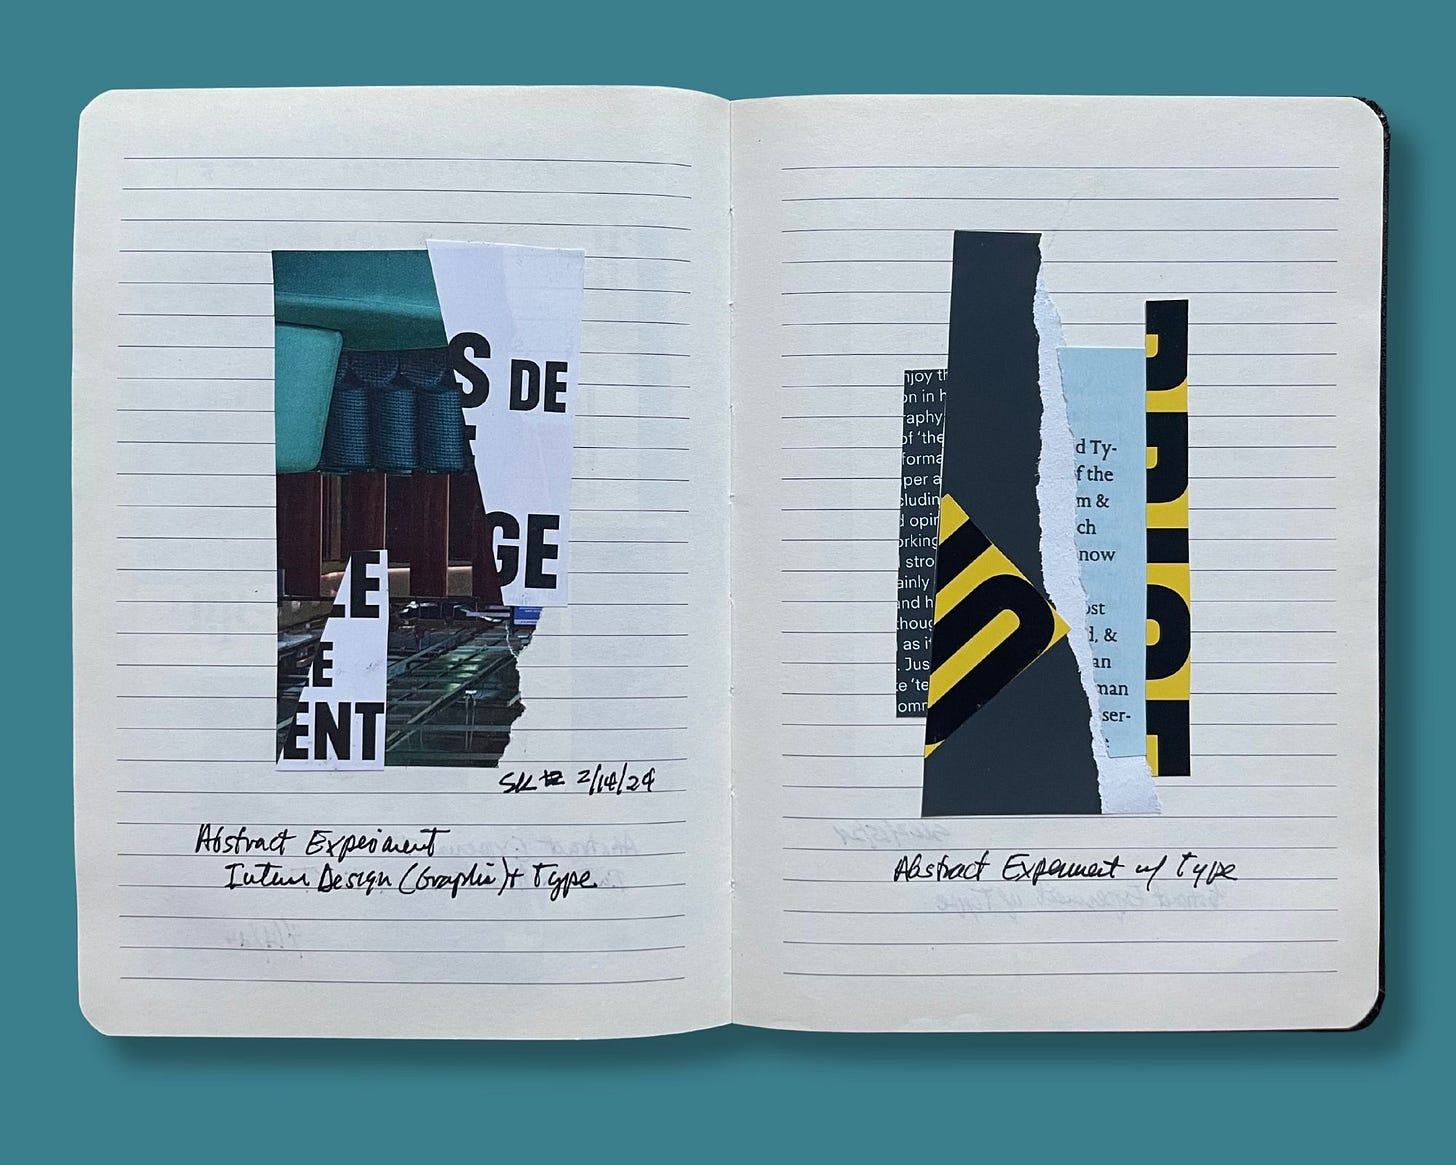 S DE
GE
LE
E
ENT
2/14/24
Abstract Experiment
Design (Graphic) + Type
njoy th
on in h
raphy
of 'the
forma
per a
cludin
d opin
orking
stro
ainly
and h
thoug
as if
. Jus
te 'te
omm
d Ty-
f the
m &
ch
now
ost
d, &
an
man
ser-
Abstract Experiment w/ Type